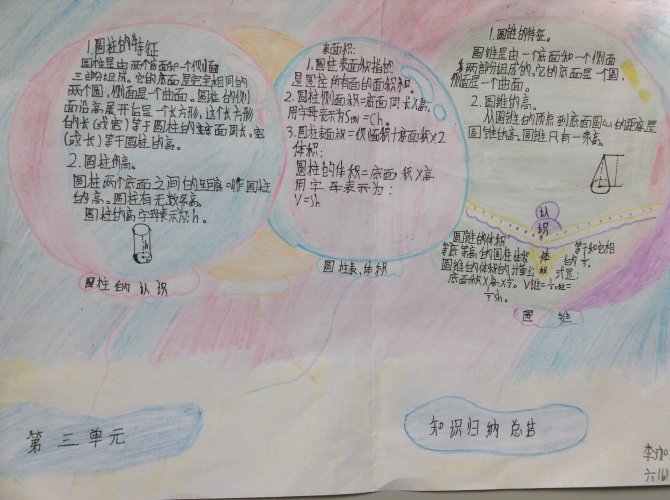 1.圆柱的特征
圆柱是由两个底面和一个侧面
三部分组成。它的底面是完全相同的
两个圆，侧面是一个曲面。圆柱的侧
面沿高展开后是一个长方形，这个长方形
的长(或宽)等于圆柱的底面周长，宽
(或长)等于圆柱的高。
2.圆柱的高。
圆柱两个底面之间的距离叫做圆柱
的高。圆柱有无数条高。
圆柱的高字母表示为：h。
h
圆柱的认识
表面积：
1.圆柱表面积指的
是圆柱所有面的面积和。
2.圆柱侧面积=底面周长×高，
用字母表示为S侧=Ch。
3.圆柱表面积=侧面积+底面积×2
体积：
圆柱的体积=底面积×高
用字母表示为：
V=Sh
圆柱表、体积
1.圆锥的特征。
圆锥是由一个底面和一个侧面
两部分组成的，它的底面是一个圆，
侧面是一个曲面。
2.圆锥的高。
从圆锥的顶点到底面圆心的距离是
圆锥的高，圆锥只有一条高。
认
识
圆锥的体积
等底等高的圆柱体积
圆锥的体积的计算公
底面积×高×⅓。V锥=⅓V柱=
⅓Sh。
体
积
等于和它相
的⅓。
式是：
圆 锥
第三单元
知识归纳总结
李珈
六(1)